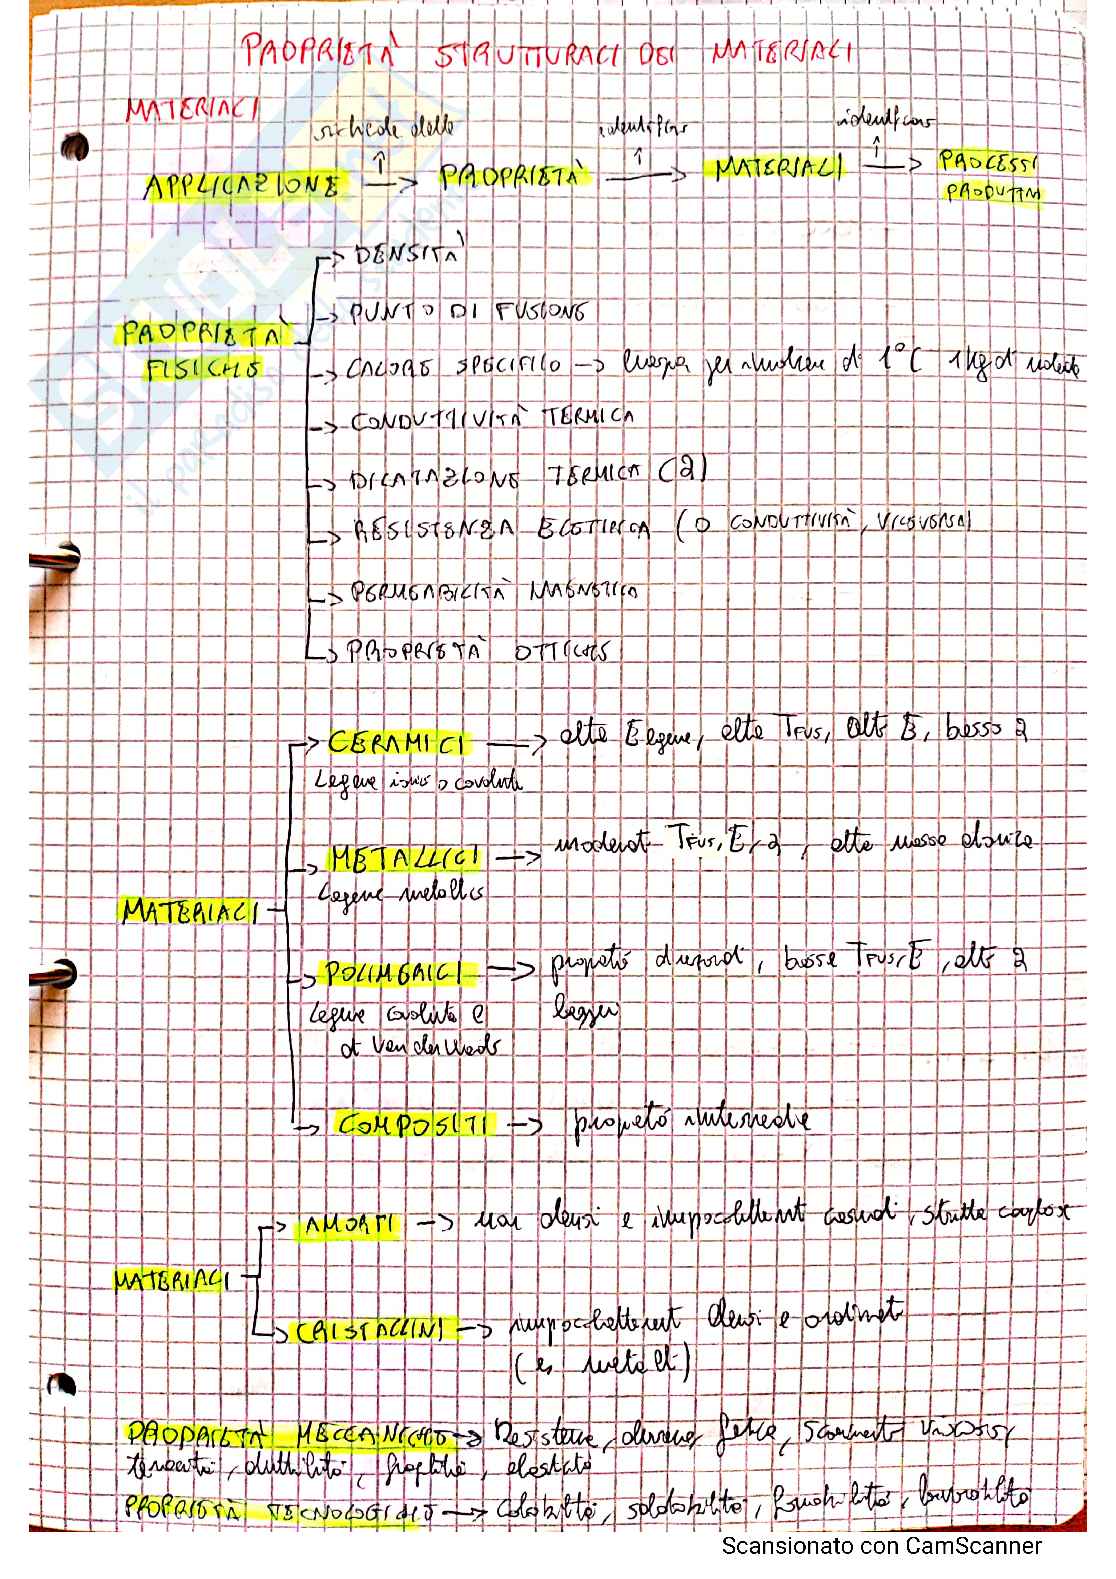 PROPRIETÀ STRUTTURALI DEI MATERIALI
MATERIALI
richiede delle identificano identificano
APPLICAZIONE → PROPRIETÀ → MATERIALI → PROCESSI
PRODUTTIVI
→ DENSITÀ
→ PUNTO DI FUSIONE
PROPRIETÀ
FISICHE
→ CALORE SPECIFICO → per di 1°C 1 kg di
→ CONDUTTIVITÀ TERMICA
→ DILATAZIONE TERMICA (2)
→ RESISTENZA ELETTRICA (O CONDUTTIVITÀ, VICEVERSA)
→ PERMEABILITÀ MAGNETICA
→ PROPRIETÀ OTTICHE
→ CERAMICI → alta E legame, alta TFUS, alto E, basso 2
Legame ionico o covalente
→ METALLICI → moderat TFUS, E, 2, alta massa atomica
Legame metallico
MATERIALI
→ POLIMERICI → proprietà diverse, basse TFUS, E, alto 2
Legame covalente e leggeri
di Van der Waals
→ COMPOSITI → proprietà intermedie
→ AMORFI → non densi e impacchettamenti casuali, struttura complessa
MATERIALI
→ CRISTALLINI → impacchettamenti densi e ordinati
(es metalli)
PROPRIETÀ MECCANICHE → Resistenza, durezza, fatica, scorrimento viscoso,
tenacità, duttilità, fragilità, elasticità
PROPRIETÀ TECNOLOGICHE → Colabilità, saldabilità, fucinabilità, lavorabilità
Scansionato con CamScanner